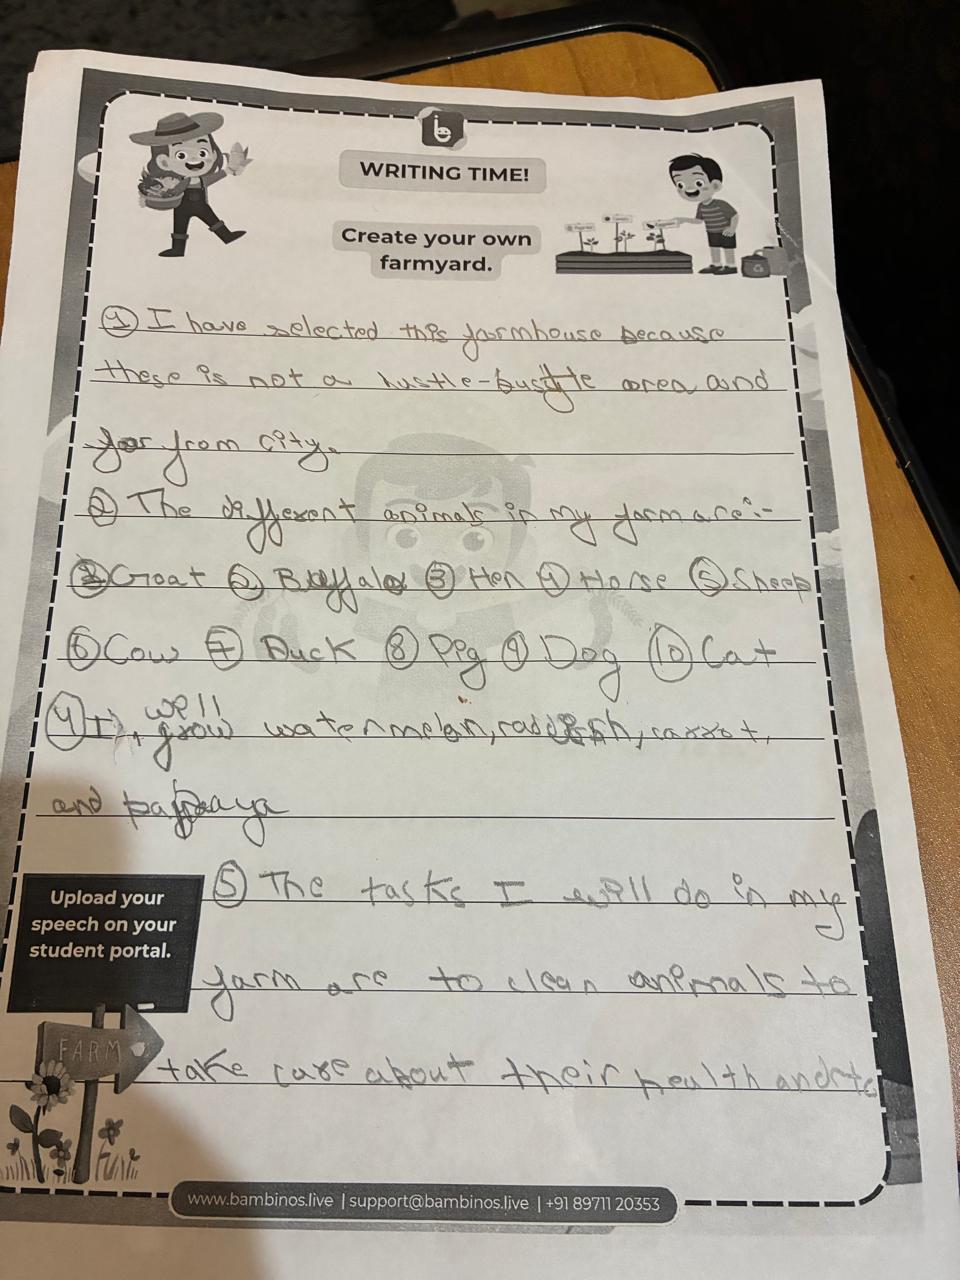 WRITING TIME!
Create your own
farmyard.
① I have selected this farmhouse because
these is not a hustle-bustle area and
far from city.
② The different animals in my farm are:-
Goat ② Buffalo ③ Hen ④ Horse ⑤ Sheep
⑥ Cow ⑦ Duck ⑧ Pig ⑨ Dog ⑩ Cat
will
④ I, grow watermelon, raddish, carrot,
and papaya
⑤ The tasks I will do in my
farm are to clean animals to
take care about their health and to
Upload your
speech on your
student portal.
FARM
www.bambinos.live | support@bambinos.live | +91 89711 20353